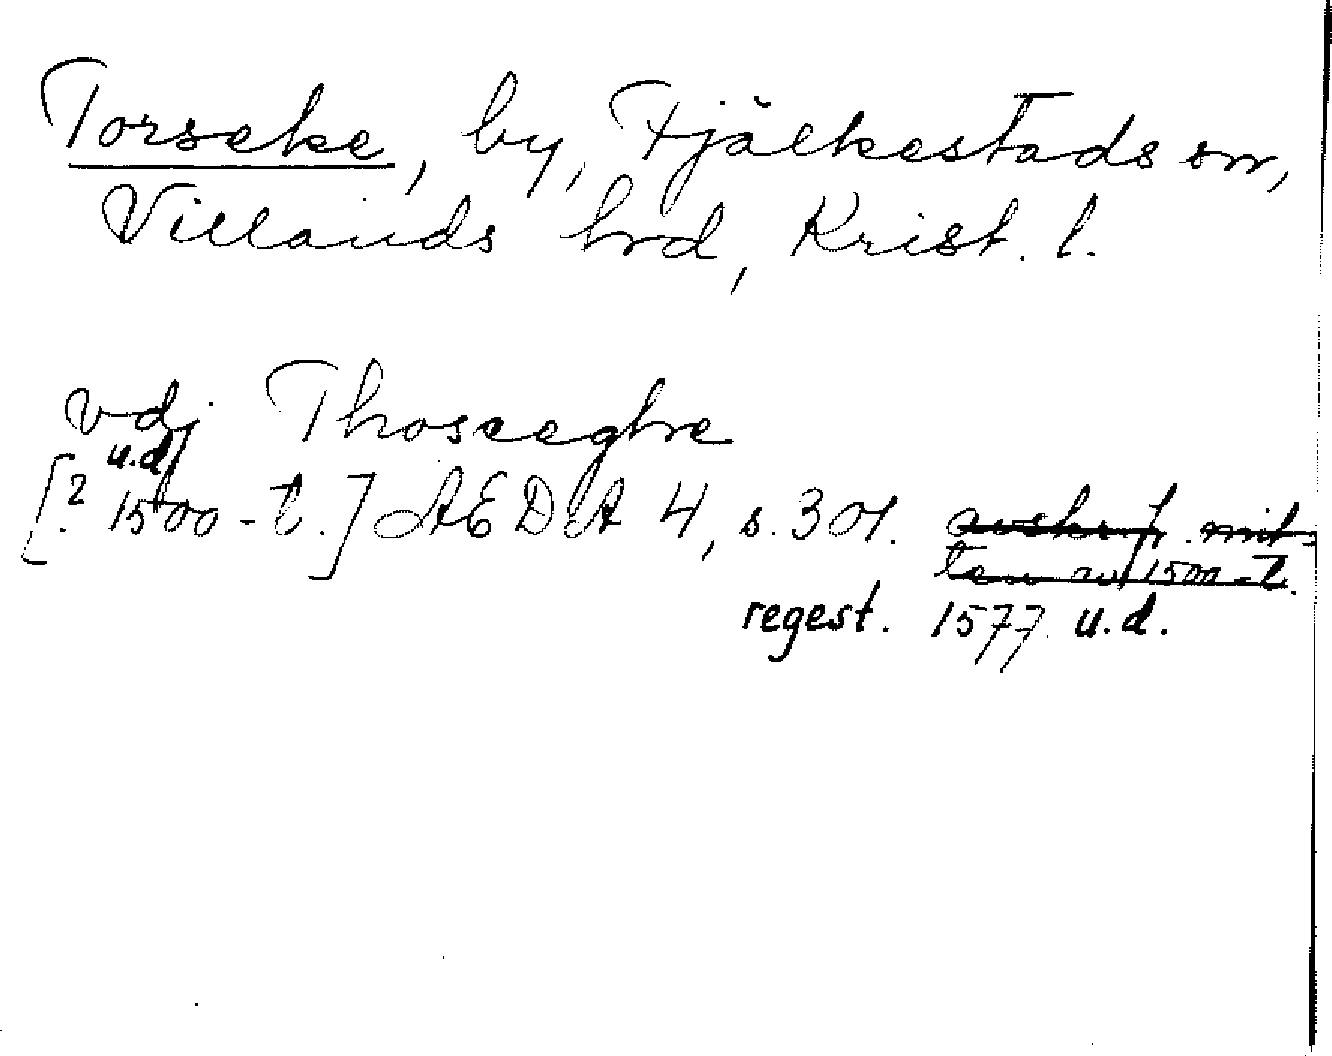 Torseke, by, Fjälkestads sn,
Villands hrd, Krist. l.
vdj Thoseeghre
u.d.
[? 1500-t.] AEDA 4, s. 301. avskrift mit-
ten av 1500-t.
regest. 1577 u.d.